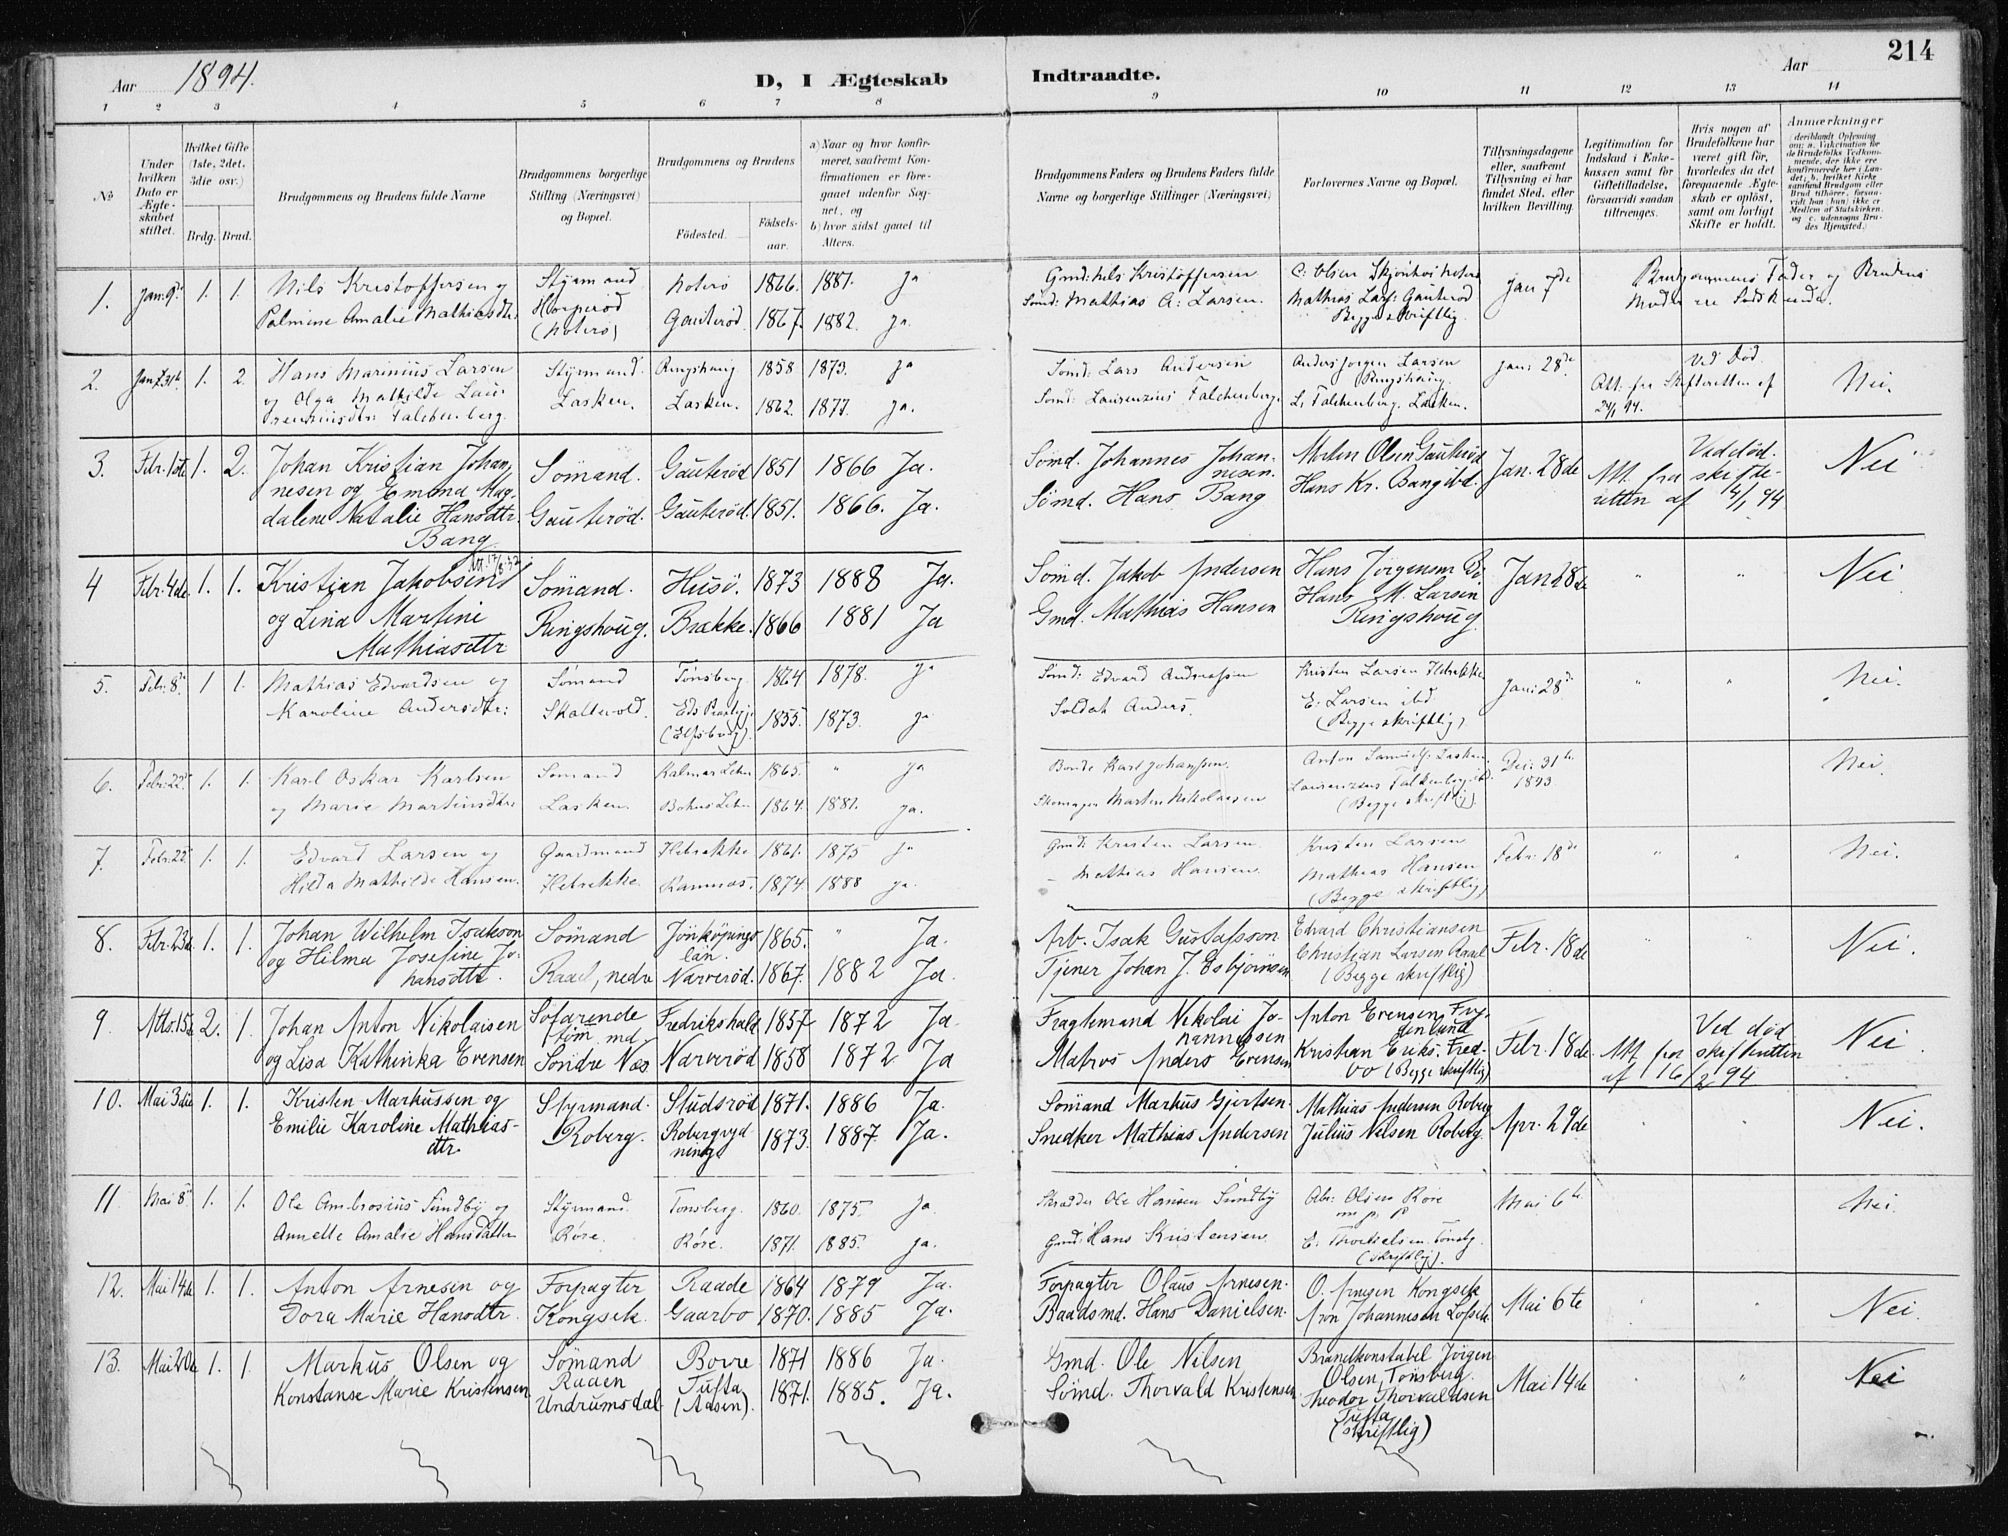 Aar 1894.
D, I Ægteskab
Indtraadte.
Aar
214
1 2 3 4 5 6 7 8 9 10 11 12 13 14
No
Under hvilken Dato er Ægteskabet stiftet.
Hvilket Gifte (1ste, 2det, 3die osv.)
Brdg. Brud.
Brudgommens og Brudens fulde Navne
Brudgommens borgerlige Stilling (Næringsvei) og Bopæl.
Brudgommens og Brudens
Fødested. Fødselsaar.
a) Naar og hvor konfirmeret, saafremt Konfirmationen er foregaaet udenfor Sognet, og
b) hvor sidst gaaet til Alters.
Brudgommens Faders og Brudens Faders fulde Navne og borgerlige Stillinger (Næringsvei)
Forlovernes Navne og Bopæl.
Tillysningsdagene eller, saafremt Tillysning ei har fundet Sted, efter hvilken Bevilling.
Legitimation for Indskud i Enkekassen samt for Giftetilladelse, forsaavidt saadan tiltrænges.
Hvis nogen af Brudefolkene har været gift før, hvorledes da det foregaaende Ægteskab er opløst, samt om lovligt Skifte er holdt.
Anmærkninger (deriblandt Oplysning om: a. Vakcination for de Brudefolks Vedkommende, der ikke ere konfirmerede her i Landet; b. hvilket Kirkesamfund Brudgom eller Brud tilhører, forsaavidt han (hun) ikke er Medlem af Statskirken, og c. udensogns Brudes Hjemsted.)
1. Jan: 9de 1. 1. Nils Kristoffersen og Styrmand Noterö 1866. 1881. ja Gmd: Nils Kristoffersen Jan 7de Brudgommens Fader og Brudens
Palmine Amalie Mathiasdtr: (Noterö) Gauterød. 1867. 1882. ja. Sömd: Mathias A: Larsen. Mathias Lars: Gauterød Moder ere Södskende.
Begge skriftlig.
2. Jan: 31te 1. 2. Hans Marinius Larsen Styrmand. Ringshaug 1858 1873. ja Sömd: Lars Andersen Anders Jørgen Larsen Jan: 28de Ved Död. Nei.
og Olga Mathilde Lau- Lasken. Lasken. 1862. 1877. ja. Sömd: Laurenzius Falchenberg. Ringshaug. Att: fra Skifteretten af
rentiusdtr: Falchenberg. L. Falchenberg. Lasken. 24/1 94.
3. Febr. 1ste 1. 2. Johan Kristian Johan- Sömand. Gauterød 1851 1866 Ja. Sömd. Johannes Johan- Morten Olsen Gauterød Jan. 28de Ved död. Nei
nesen og Emma Mag- nesen. Att. fra skifte-
dalene Natalie Hansdtr. Gauterød. Gauterød. 1851. 1866. Ja. Sömd. Hans Bang Hans Kr. Bang ibd. retten af 4/1 94
Bang
4 Febr. 4de 1. 1. Kristian Jakobsen Sömand. Husö. 1873 1888 Ja. Sömd. Jakob Andersen Hans Jörgensen Jan 28de " " Nei
og Lina Martini Ringshoug. Brekke. 1866 1881 Ja Gmd. Mathias Hansen Hans M. Larsen
Mathiasdtr Ringshoug
5. Febr: 8de 1 1. Mathias Edvardsen og Sömand Tönsberg. 1864 1878. ja Sömd: Edvard Andreassen Kristen Larsen Hebrekke Jan: 28de " " Nei.
Karoline Andersdtr: Skallevold. (Elfsborg). 1855. 1873. ja Soldat Anders. E. Larsen ibd
(Begge skriftlig)
6. Febr: 22de 1. 1. Karl Oskar Karlsen Sömand Kalmar Lehn 1865. " ja Bonde Karl Johanssen. Anton Samuels: Lasken Dec: 31te 1893. Nei.
og Marie Martinsdtr: Lasken. Bohus Lehn 1864. 1881. ja. Skomager Morten Nikolaisen Laurenzius Falkenberg ibd.
(Begge skriftlig).
7. Febr: 22. 1. 1. Edvard Larsen og Gaardmand Hebrekke 1861. 1875 ja Gmd: Kristen Larsen. Kristen Larsen Febr: 18de " " Nei.
Hilda Mathilde Hansen. Hebrekke. Ramnæs. 1874. 1888 ja. - Mathias Hansen. Mathias Hansen
(Begge skriftlig)
8. Febr. 23de 1. 1. Johan Wilhelm Isakson Sömand Jönköpings län. 1865. " Ja. Arb. Isak Gustafsson Edvard Christiansen Febr. 18de " " Nei.
og Hilma Josefine Jo- Raael, nedre Narverød. 1867. 1882 Ja. Tjener Johan J. Esbjörnsen Christian Larsen Raael
hansdtr. (Begge skriftlig)
9. Mts. 15de 2. 1. Johan Anton Nikolaisen Söfarende Fredrikshald 1857 1872 Ja. Fragtemand Nikolai Jo- Anton Evensen, Febr. 18de Ved död Nei.
tömmd. hannessen Att. fra skifteretten
og Lisa Kathinka Evensen Söndre Næs Narverød 1858 1872 Ja Matros Anders Evensen Kristian Eriks. Fred- af 16/2 94
(Begge skriftlig)
10. Mai 3die 1. 1. Kristen Markussen og Styrmand. Studsrød 1871. 1886 Ja. Sömand Markus Gjertsen. Mathias Andersen Roberg Apr. 29de Nei.
Emilie Karoline Mathias- Roberg. Robergryd- 1873. 1887. Ja. Snedker Mathias Andersen Julius Nilsen Roberg.
dtr. ning
11 Mai 8de 1. 1. Ole Ambrosius Sundby og Styrmand. Tönsberg. 1860. 1875. ja. Skrædder Ole Hansen Sundby Abr: Olsen Røre Mai 6te Nei.
Annette Amalie Hansdatter Røre. Røre. 1871. 1885. ja. Gmd: Hans Kristensen. m. p. p.
(skriftlig).
12. Mai 14de 1. 1. Anton Arnesen og Forpagter Raade 1864 1879 Ja. Forpagter Olaus Arnesen. O. Arnesen Kongsek Mai 6te " " Nei.
Dora Marie Hansdtr. Kongsek. Gaarbo 1870. 1885 Ja. Baadsmd. Hans Danielsen. Aron Johannesen
13. Mai 20de 1. 1. Markus Olsen og Sömand Borre 1871 1886 Ja. Gmd. Ole Nilsen Brandkonstabel Jörgen Mai 14de " " Nei
Raaen Olsen, Tönsberg.
Konstanse Marie Kristensen Undrumsdal Tufta (Aasen). 1871. 1885. Ja. Sömd. Thorvald Kristensen. Theodor Thorvaldsen
Tufta
(skriftlig)